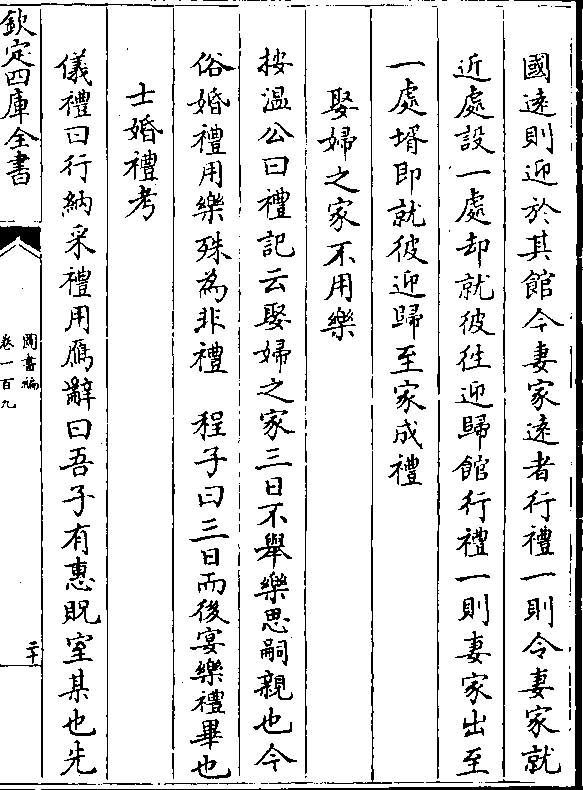 國遠則迎於其館今妻家遠者行禮一則令妻家就
近處設一處却就彼往迎歸館行禮一則妻家出至
一處壻即就彼迎歸至家成禮
娶婦之家不用樂
按温公曰禮記云娶婦之家三日不舉樂思嗣親也今
俗婚禮用樂殊為非禮　程子曰三日而後宴樂禮畢也
士婚禮考
儀禮曰行納采禮用鴈辭曰吾子有惠貺室某也先
欽定四庫全書
圖書編
卷一百九
二十